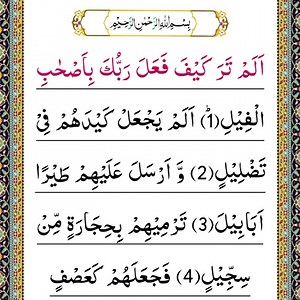 بِسْمِ اللهِ الرَّحْمٰنِ الرَّحِيْمِ
اَلَمْ تَرَ كَيْفَ فَعَلَ رَبُّكَ بِاَصْحٰبِ
الْفِيْلِ(1) اَلَمْ يَجْعَلْ كَيْدَهُمْ فِيْ
تَضْلِيْلٍ(2) وَّ اَرْسَلَ عَلَيْهِمْ طَيْرًا
اَبَابِيْلَ(3) تَرْمِيْهِمْ بِحِجَارَةٍ مِّنْ
سِجِّيْلٍ(4) فَجَعَلَهُمْ كَعَصْفٍ